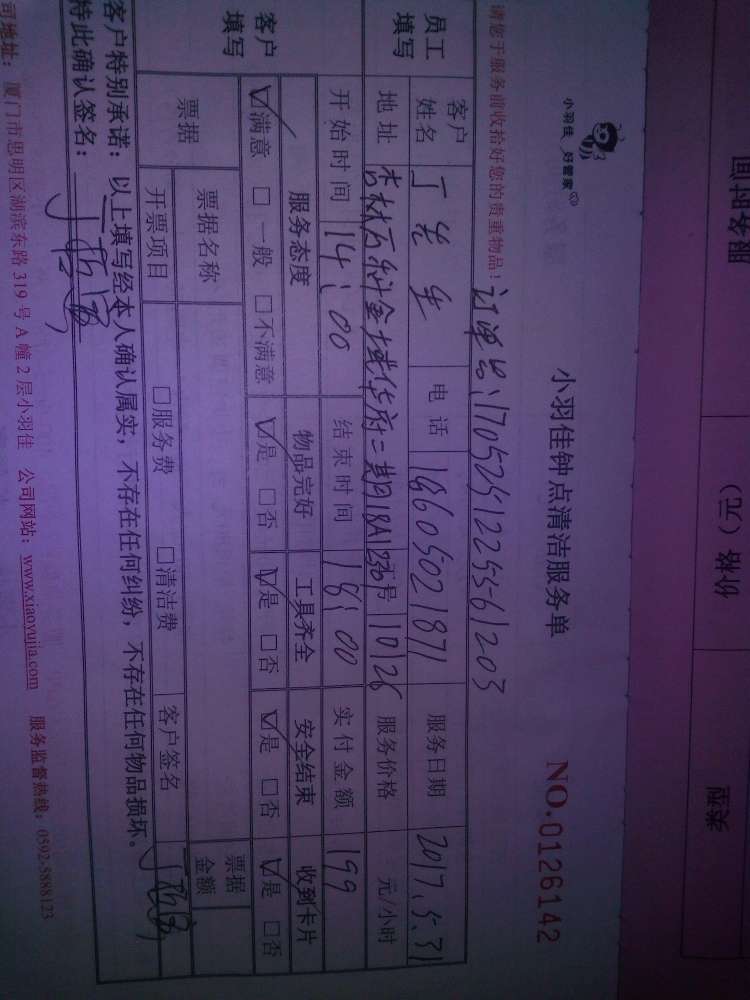 服务时间 价格（元）
小羽佳 好管家
小羽佳钟点清洁服务单 NO.0126142
请您于服务前收拾好您的贵重物品！
员工填写 客户姓名 丁先生 电话 18605021871 服务日期 2017.5.31
地址 号 110126 服务价格 元/小时
开始时间 14:00 结束时间 18:00 实付金额 199
客户填写 服务态度 物品完好 工具齐全 安全结束 收到卡片
☑满意 □一般 □不满意 ☑是 □否 ☑是 □否 ☑是 □否 ☑是 □否
票据 票据名称 票据金额
开票项目 □服务费 □清洁费 客户签名
客户特别承诺：以上填写经本人确认属实，不存在任何纠纷，不存在任何物品损坏。
特此确认签名：
司地址：厦门市思明区湖滨东路 319 号 A 幢 2 层小羽佳 公司网站：www.xiaoyujia.com 服务监督热线：0592-5888123